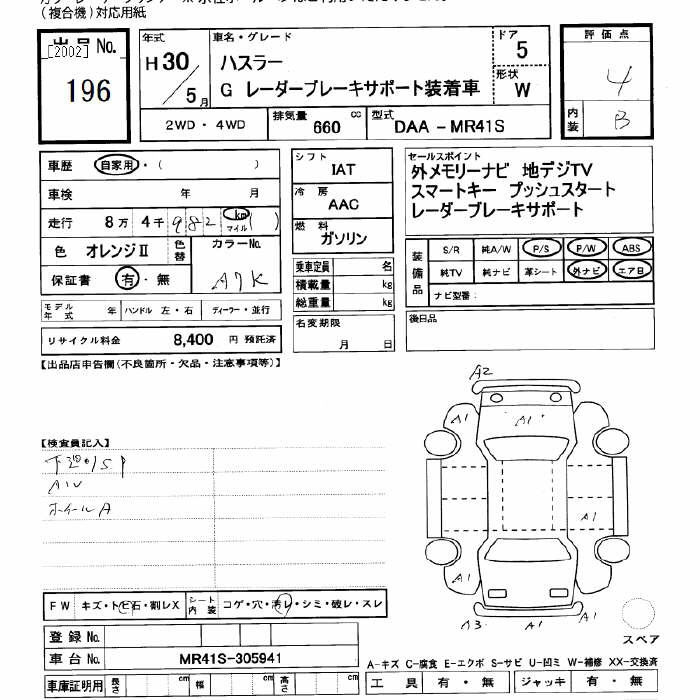 (複合機)対応用紙
出品No.
[2002]
196
年式
H30/5月
車名・グレード
ハスラー
G レーダーブレーキサポート装着車
ドア
5
形状
W
2WD・4WD
排気量 660 cc
型式 DAA-MR41S
評価点
4
内装 B
車歴 自家用・( )
車検 年 月
走行 8万 4千 982 km マイル ( )
色 オレンジⅡ
色替
カラーNo.
A7K
保証書 有・無
モデル年式 年 ハンドル 左・右 ディーラー・並行
リサイクル料金 8,400 円 預託済
シフト
IAT
冷房
AAC
燃料
ガソリン
乗車定員 名
積載量 kg
総重量 kg
名変期限
月 日
セールスポイント
外メモリーナビ 地デジTV
スマートキー プッシュスタート
レーダーブレーキサポート
装備品
S/R 純A/W P/S P/W ABS
純TV 純ナビ 革シート 外ナビ エアB
ナビ型番:
後日品
【出品店申告欄(不良箇所・欠品・注意事項等)】
【検査員記入】
ホイールA
A2
A1
A1
A1
A1
A1
A1
A3
A1
A1
スペア
FW キズ・トビ石・割レX
シート内装 コゲ・穴・汚レ・シミ・破レ・スレ
登録No.
車台No. MR41S-305941
車庫証明用 長さ cm 幅 cm 高さ cm
A-キズ C-腐食 E-エクボ S-サビ U-凹ミ W-補修 XX-交換済
工具 有・無 ジャッキ 有・無